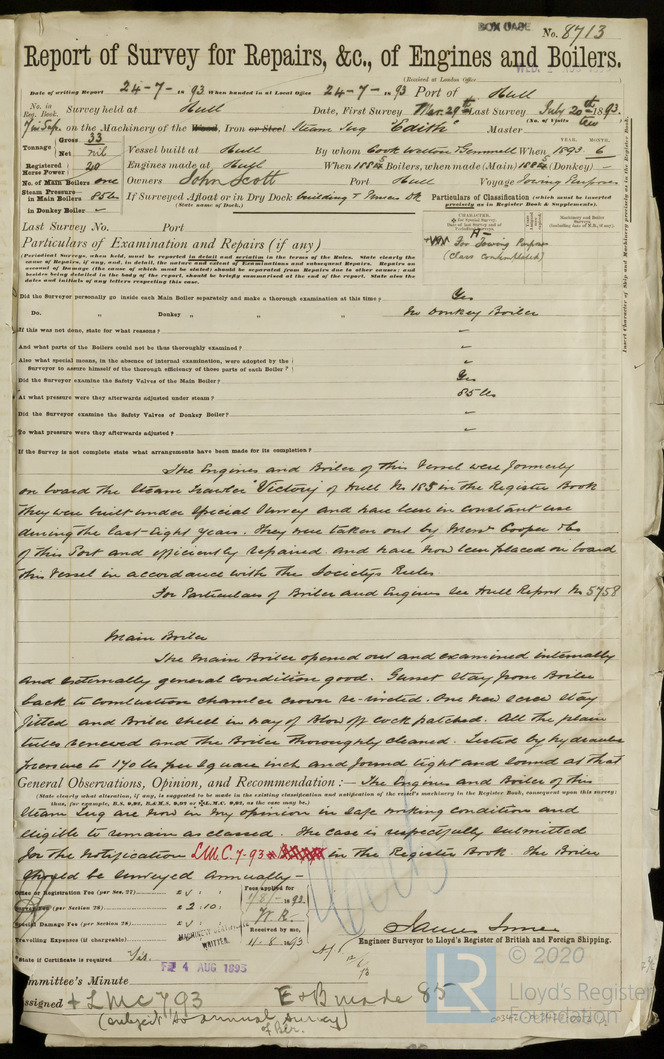 BOX CASE No. 8713
Report of Survey for Repairs, &c., of Engines and Boilers.
(Received at London Office
Date of writing Report 24-7-1893 When handed in at Local Office 24-7-1893 Port of Hull
No. in Reg. Book. Survey held at Hull Date, First Survey Mar. 29th Last Survey July 20th 1893.
(No. of Visits
on the Machinery of the Wood, Iron or Steel Steam Tug "Edith" Master
Tonnage Gross 33 Net nil
Vessel built at Hull By whom Cook Welton & Gemmell When YEAR. 1893 MONTH. 6
Registered Horse Power 20 Engines made at Hull When 1885 Boilers, when made (Main) 1885 (Donkey) –
No. of Main Boilers one Owners John Scott Port Hull Voyage Towing Purposes
Steam Pressure in Main Boilers 85 lbs If Surveyed Afloat or in Dry Dock building &
(State name of Dock.)
in Donkey Boiler –
Particulars of Classification (which must be inserted precisely as in Register Book & Supplements).
Last Survey No. Port
For Towing Purposes
(Class contemplated)
Particulars of Examination and Repairs (if any)
(Periodical Surveys, when held, must be reported in detail and seriatim in the terms of the Rules. State clearly the
cause of Repairs, if any, and, in detail, the nature and extent of Examinations and subsequent Repairs. Repairs on
account of Damage (the cause of which must be stated) should be separated from Repairs due to other causes; and
besides being detailed in the body of the report, should be briefly summarised at the end of the report. State also the
dates and initials of any letters respecting this case.
Did the Surveyor personally go inside each Main Boiler separately and make a thorough examination at this time? Yes
Do. " Donkey " " " No Donkey Boiler
If this was not done, state for what reasons? –
And what parts of the Boilers could not be thus thoroughly examined? –
Also what special means, in the absence of internal examination, were adopted by the
Surveyor to assure himself of the thorough efficiency of those parts of each Boiler? –
Did the Surveyor examine the Safety Valves of the Main Boiler? Yes
At what pressure were they afterwards adjusted under steam? 85 lbs
Did the Surveyor examine the Safety Valves of Donkey Boiler? –
To what pressure were they afterwards adjusted? –
If the Survey is not complete state what arrangements have been made for its completion?
The Engines and Boiler of this Vessel were formerly
on board the Steam Trawler "Victory" of Hull No 185 in the Register Book
They were built under Special Survey and have been in constant use
during the last Eight years. They were taken out by Messrs Cooper & Co
of this Port and efficiently repaired and have now been placed on board
this Vessel in accordance with the Society's Rules.
For Particulars of Boiler and Engines see Hull Report No 5758
Main Boiler
The Main Boiler opened out and examined internally
and externally general condition good. Gusset stay from Boiler
back to combustion chamber crown re-riveted. One new screw stay
fitted and Boiler shell in way of blow off cock patched. All the plain
tubes renewed and the Boiler thoroughly cleaned. Tested by hydraulic
pressure to 170 lbs per square inch and found tight and sound at that
General Observations, Opinion, and Recommendation:— The Engines and Boiler of this
(State clearly what alteration, if any, is suggested to be made in the existing classification and notification of the vessel's machinery in the Register Book, consequent upon this survey:
thus, for example, B.S. 9,92, B.&M.S. 9,92 or L.M.C. 9,92, as the case may be.)
Steam Tug are now in my opinion in safe working condition and
eligible to remain as classed. The case is respectfully submitted
for the notification L.M.C. 7-93 in the Register Book. The Boiler
should be surveyed annually –
Office or Registration Fee (per Sec. 27) £
Survey Fee (per Section 28) £ 2.10.
Special Damage Fee (per Section 28) £
Travelling Expenses (if chargeable)
Fees applied for 1/8/1893
Received by me, 11.8.1893
MACHINERY CERTIFICATE WRITTEN.
James
Engineer Surveyor to Lloyd's Register of British and Foreign Shipping.
State if Certificate is required Yes
Committee's Minute FRI 4 AUG 1893
Assigned + LMC 7 93 E&B made 85
(subject to annual survey of Blr.
LR © 2020
Lloyd's Register
Foundation